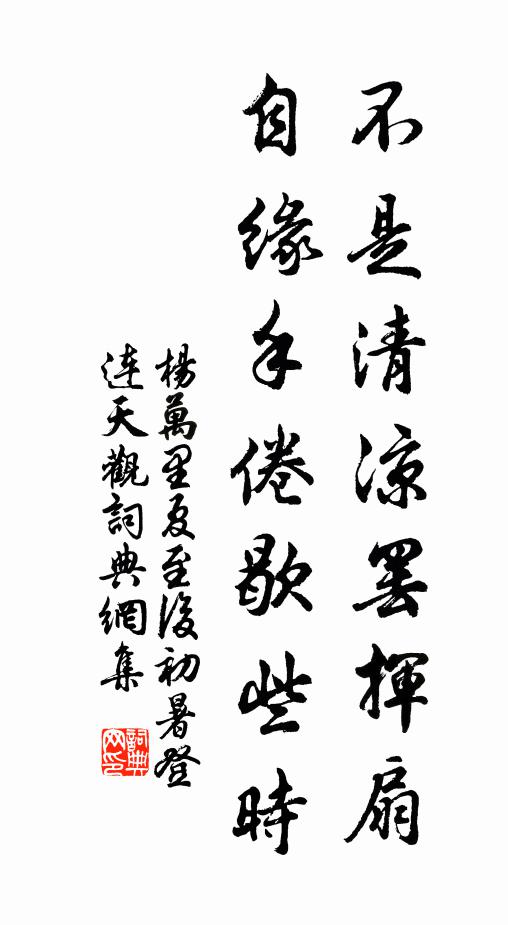 不是清涼罷揮扇
自緣手倦歇些時
楊萬里夏至後初暑登
連天觀詞典網集
詞典
网印